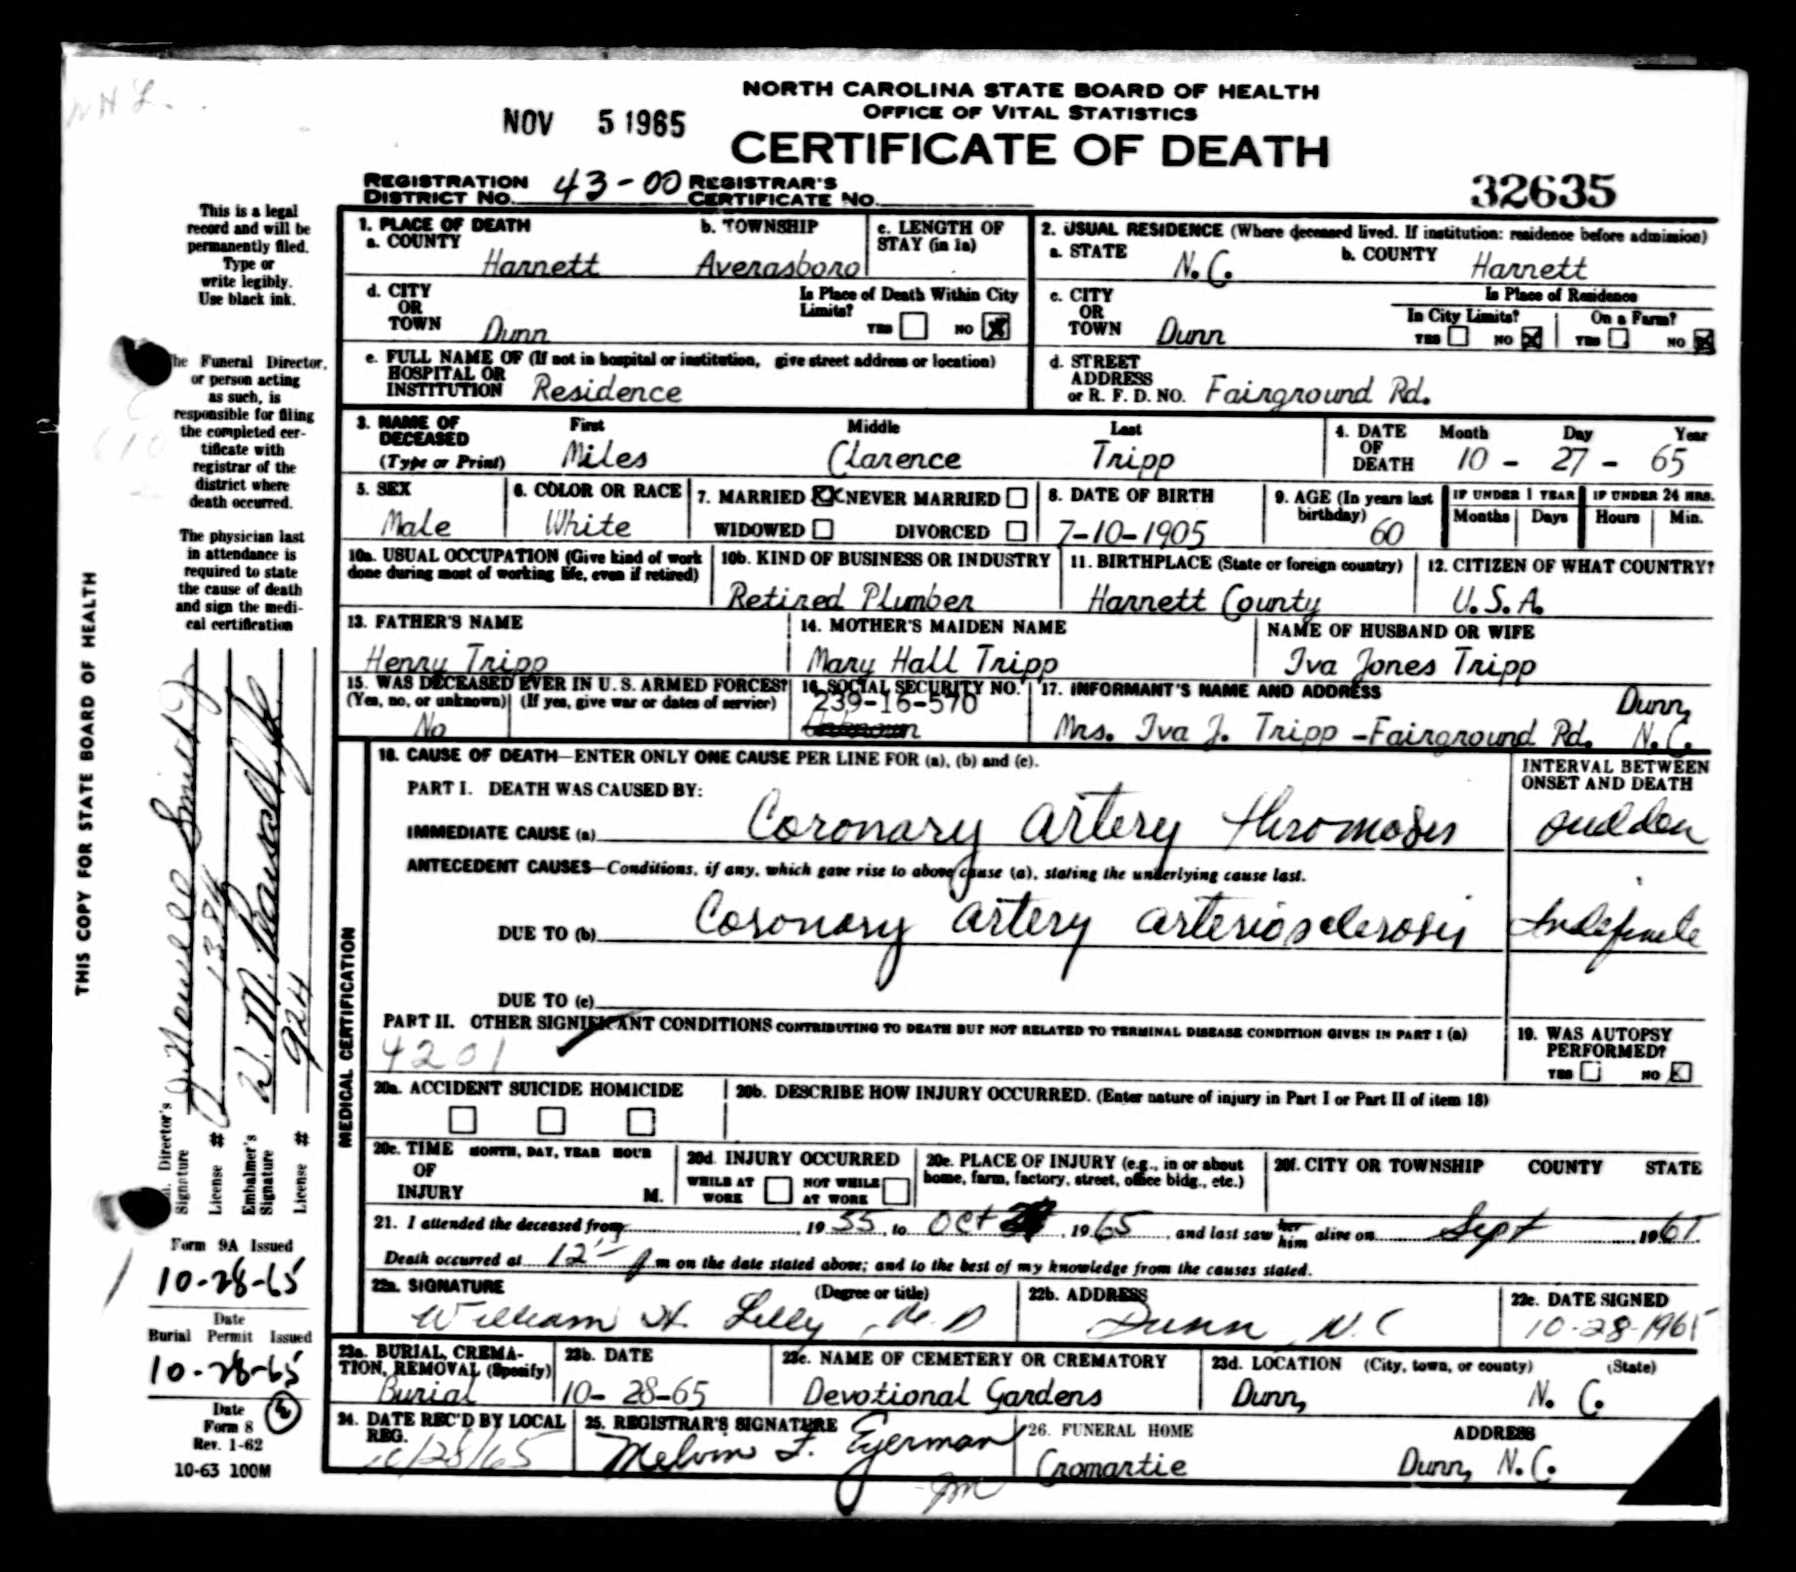 W H L.
NORTH CAROLINA STATE BOARD OF HEALTH
OFFICE OF VITAL STATISTICS
NOV 5 1965
CERTIFICATE OF DEATH
REGISTRATION DISTRICT NO. 43-00 REGISTRAR'S CERTIFICATE NO.
32635
This is a legal
record and will be
permanently filed.
Type or
write legibly.
Use black ink.
The Funeral Director,
or person acting
as such, is
responsible for filing
the completed cer-
tificate with
registrar of the
district where
death occurred.
The physician last
in attendance is
required to state
the cause of death
and sign the medi-
cal certification
THIS COPY FOR STATE BOARD OF HEALTH
Director's Signature
License # 1384
Embalmer's Signature W. M.
License # 924
Form 9A Issued
10-28-65
Date
Burial Permit Issued
10-28-65
Date
Form 8
Rev. 1-62
10-63 100M
1. PLACE OF DEATH
a. COUNTY Harnett
b. TOWNSHIP Averasboro
c. LENGTH OF STAY (in 1a)
2. USUAL RESIDENCE (Where deceased lived. If institution: residence before admission)
a. STATE N.C.
b. COUNTY Harnett
d. CITY OR TOWN Dunn
Is Place of Death Within City Limits? YES NO X
c. CITY OR TOWN Dunn
Is Place of Residence
In City Limits? YES NO X
On a Farm? YES NO X
e. FULL NAME OF (If not in hospital or institution, give street address or location)
HOSPITAL OR INSTITUTION Residence
d. STREET ADDRESS or R. F. D. NO. Fairground Rd.
3. NAME OF DECEASED (Type or Print)
First Miles Middle Clarence Last Tripp
4. DATE OF DEATH Month 10 - Day 27 - Year 65
5. SEX Male
6. COLOR OR RACE White
7. MARRIED X NEVER MARRIED
WIDOWED DIVORCED
8. DATE OF BIRTH 7-10-1905
9. AGE (In years last birthday) 60
IF UNDER 1 YEAR Months Days
IF UNDER 24 HRS. Hours Min.
10a. USUAL OCCUPATION (Give kind of work done during most of working life, even if retired)
10b. KIND OF BUSINESS OR INDUSTRY
Retired Plumber
11. BIRTHPLACE (State or foreign country)
Harnett County
12. CITIZEN OF WHAT COUNTRY?
U.S.A.
13. FATHER'S NAME
Henry Tripp
14. MOTHER'S MAIDEN NAME
Mary Hall Tripp
NAME OF HUSBAND OR WIFE
Iva Jones Tripp
15. WAS DECEASED EVER IN U. S. ARMED FORCES?
(Yes, no, or unknown) (If yes, give war or dates of service)
No
16. SOCIAL SECURITY NO.
239-16-570
Unknown
17. INFORMANT'S NAME AND ADDRESS
Mrs. Iva J. Tripp - Fairground Rd. Dunn, N.C.
MEDICAL CERTIFICATION
18. CAUSE OF DEATH—ENTER ONLY ONE CAUSE PER LINE FOR (a), (b) and (c).
INTERVAL BETWEEN ONSET AND DEATH
PART I. DEATH WAS CAUSED BY:
IMMEDIATE CAUSE (a) Coronary artery thromosis sudden
ANTECEDENT CAUSES—Conditions, if any, which gave rise to above cause (a), stating the underlying cause last.
DUE TO (b) Coronary artery arteriosclerosis Indefinite
DUE TO (c)
PART II. OTHER SIGNIFICANT CONDITIONS CONTRIBUTING TO DEATH BUT NOT RELATED TO TERMINAL DISEASE CONDITION GIVEN IN PART I (a)
4201
19. WAS AUTOPSY PERFORMED?
YES NO X
20a. ACCIDENT SUICIDE HOMICIDE
20b. DESCRIBE HOW INJURY OCCURRED. (Enter nature of injury in Part I or Part II of item 18)
20c. TIME OF INJURY MONTH, DAY, YEAR HOUR M.
20d. INJURY OCCURRED
WHILE AT WORK NOT WHILE AT WORK
20e. PLACE OF INJURY (e.g., in or about home, farm, factory, street, office bldg., etc.)
20f. CITY OR TOWNSHIP COUNTY STATE
21. I attended the deceased from 1955, to Oct 1965, and last saw her him alive on Sept 1965.
Death occurred at 12 m on the date stated above; and to the best of my knowledge from the causes stated.
22a. SIGNATURE (Degree or title)
William H. Lilly, M.D
22b. ADDRESS
Dunn, N.C
22c. DATE SIGNED
10-28-1965
23a. BURIAL, CREMATION, REMOVAL (Specify)
Burial
23b. DATE
10-28-65
23c. NAME OF CEMETERY OR CREMATORY
Devotional Gardens
23d. LOCATION (City, town, or county) (State)
Dunn, N.C.
24. DATE REC'D BY LOCAL REG.
10/28/65
25. REGISTRAR'S SIGNATURE
Melvin F. Eyerman
26. FUNERAL HOME ADDRESS
Cromartie Dunn, N.C.